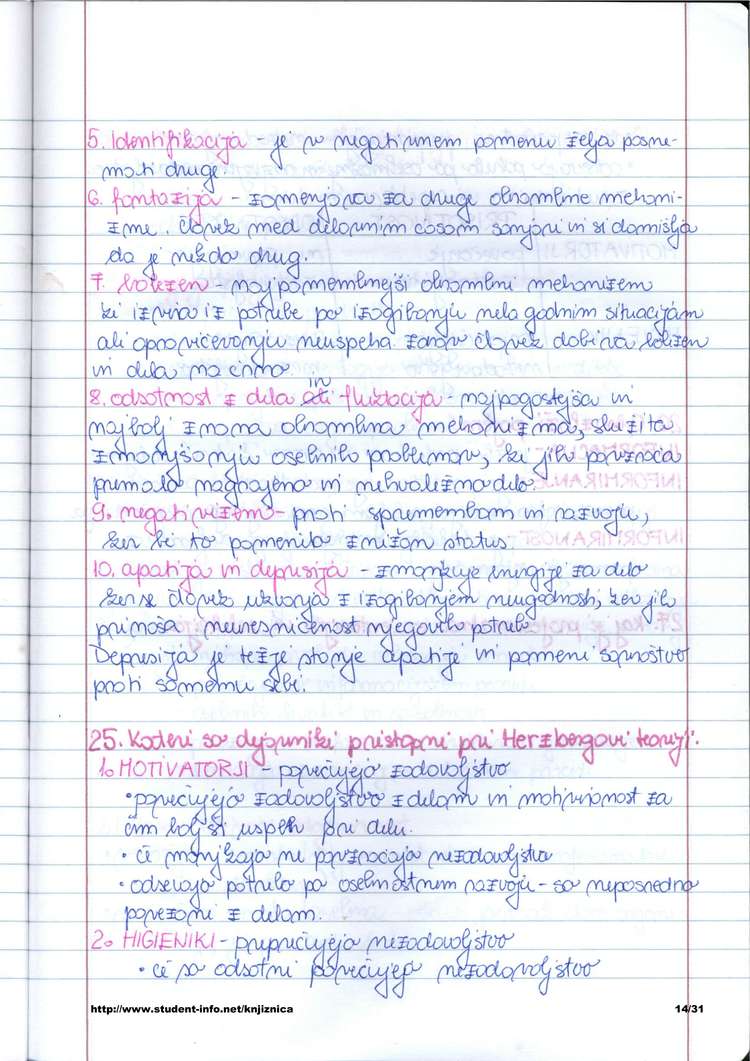 5. Identifikacija - je v negativnem pomenu želja posne-
mati druge.
6. fantazija - zamenjava za druge obrambne mehani-
zme. Človek med delovnim časom sanjari in si domišlja
da je nekdo drug.
7. bolezen - najpomembnejši obrambni mehanizem
ki izvira iz potrebe po izogibanju nelagodnim situacijam
ali opravičevanju neuspeha. Zdrav človek dobiva bolezen
in dela na črno.
8. odsotnost z dela in fluktacija - najpogostejša in
najbolj znana obrambna mehanizma, služita
zmanjšanju osebnih problemov, ki jih povzroča
premalo nagrajeno in nehvaležno delo.
9. negativizem - proti spremembam in razvoju,
ker bi to pomenilo znižan status.
10. apatija in depresija - zmanjkuje energije za delo
ker se človek ukvarja z izogibanjem neugodnosti, ker jih
prinaša neuresničenost njegovih potreb.
Depresija je težje stanje apatije in pomeni sovraštvo
proti samemu sebi.
25. Kateri so dejavniki pristopni pri Herzbergovi teoriji.
1. MOTIVATORJI - povečujejo zadovoljstvo
• povečujejo zadovoljstvo z delom in motiviranost za
čim boljši uspeh pri delu.
• če manjkajo ne povzročajo nezadovoljstva
• odsevajo potrebo po osebnostnem razvoju - so neposredno
povezani z delom.
2. HIGIENIKI - preprečujejo nezadovoljstvo
• če so odsotni povečujejo nezadovoljstvo
http://www.student-info.net/knjiznica 14/31